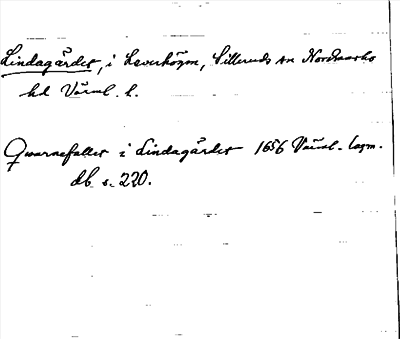 Lindagärdet, i Leverhögen, Silleruds sn Nordmarks
hd Värml. l.
Qwarnefallet i Lindagärdet 1656 Värml. lagm.
db s. 220.